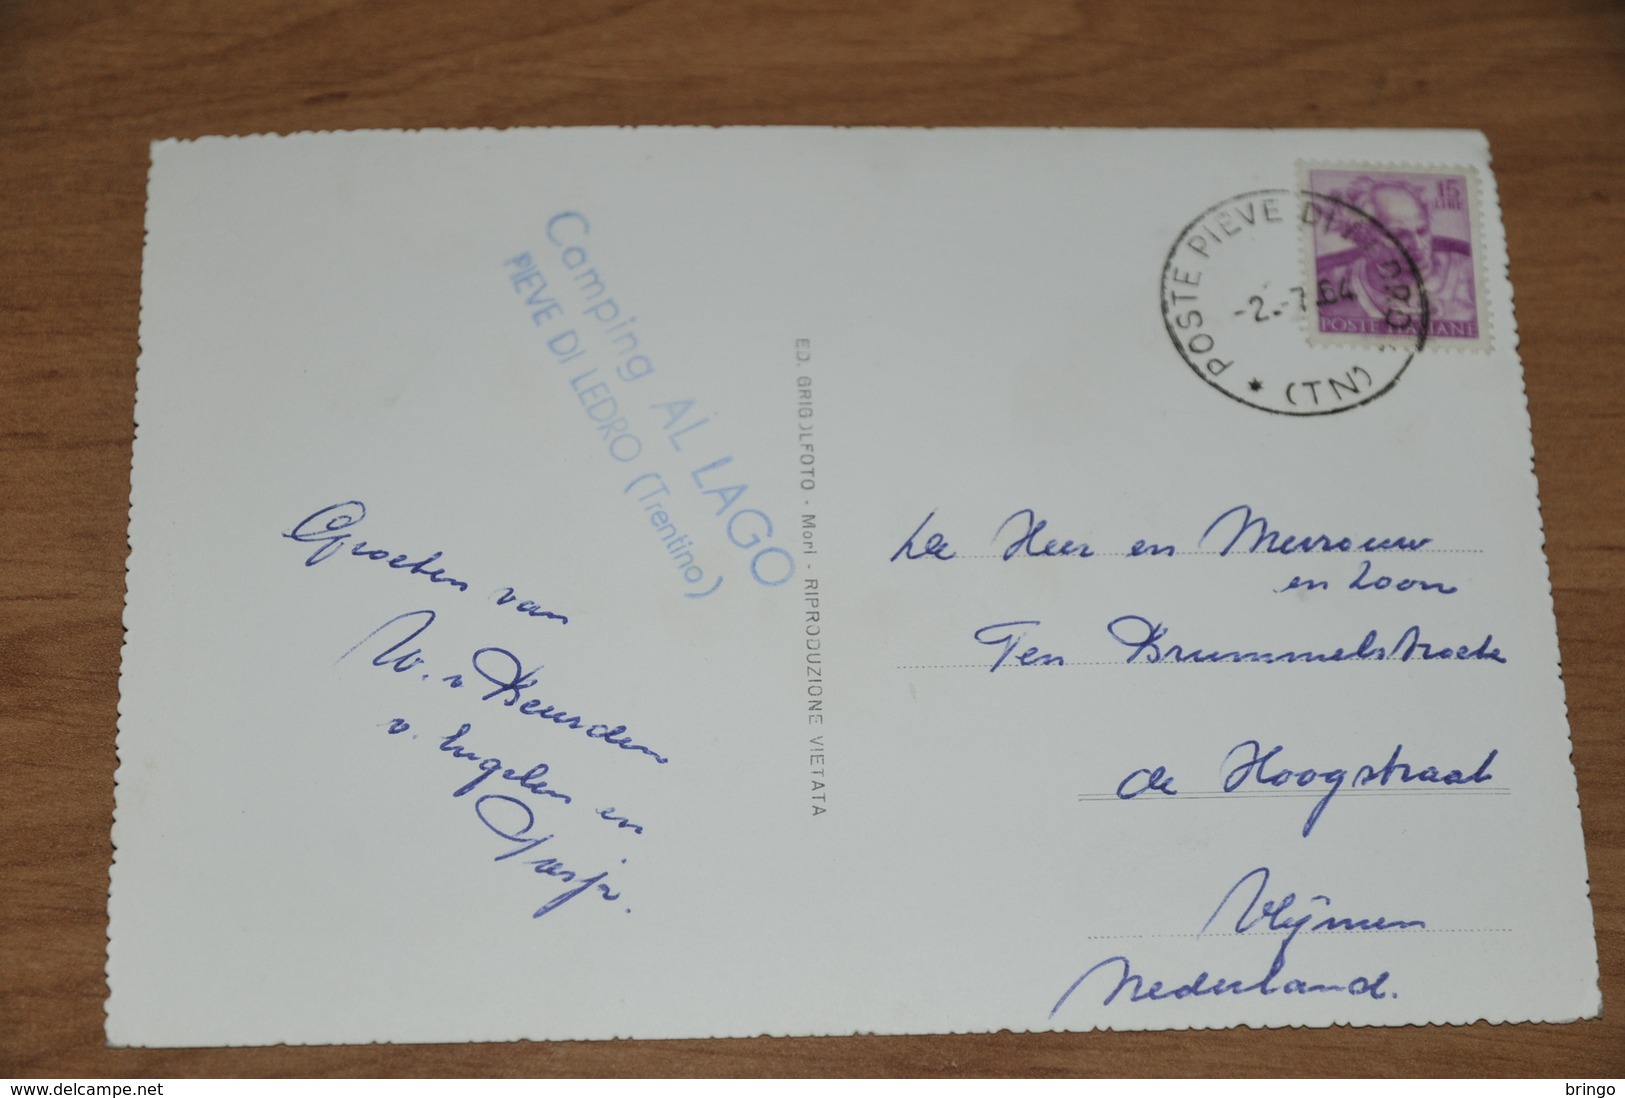 Camping AL LAGO
PIEVE DI LEDRO (Trentino)
Groeten van
W. v Beurden
v. Engelen en
ED. GRIGOLFOTO - Mori - RIPRODUZIONE VIETATA
POSTE PIEVE DI LEDRO
-2.-7.64
* (TN) *
15
LIRE
POSTE ITALIANE
De Heer en Mevrouw
en Zoon
Ten Brummelstroete
de Hoogstraat
Vlijmen
Nederland.
www.delcampe.net
bringo